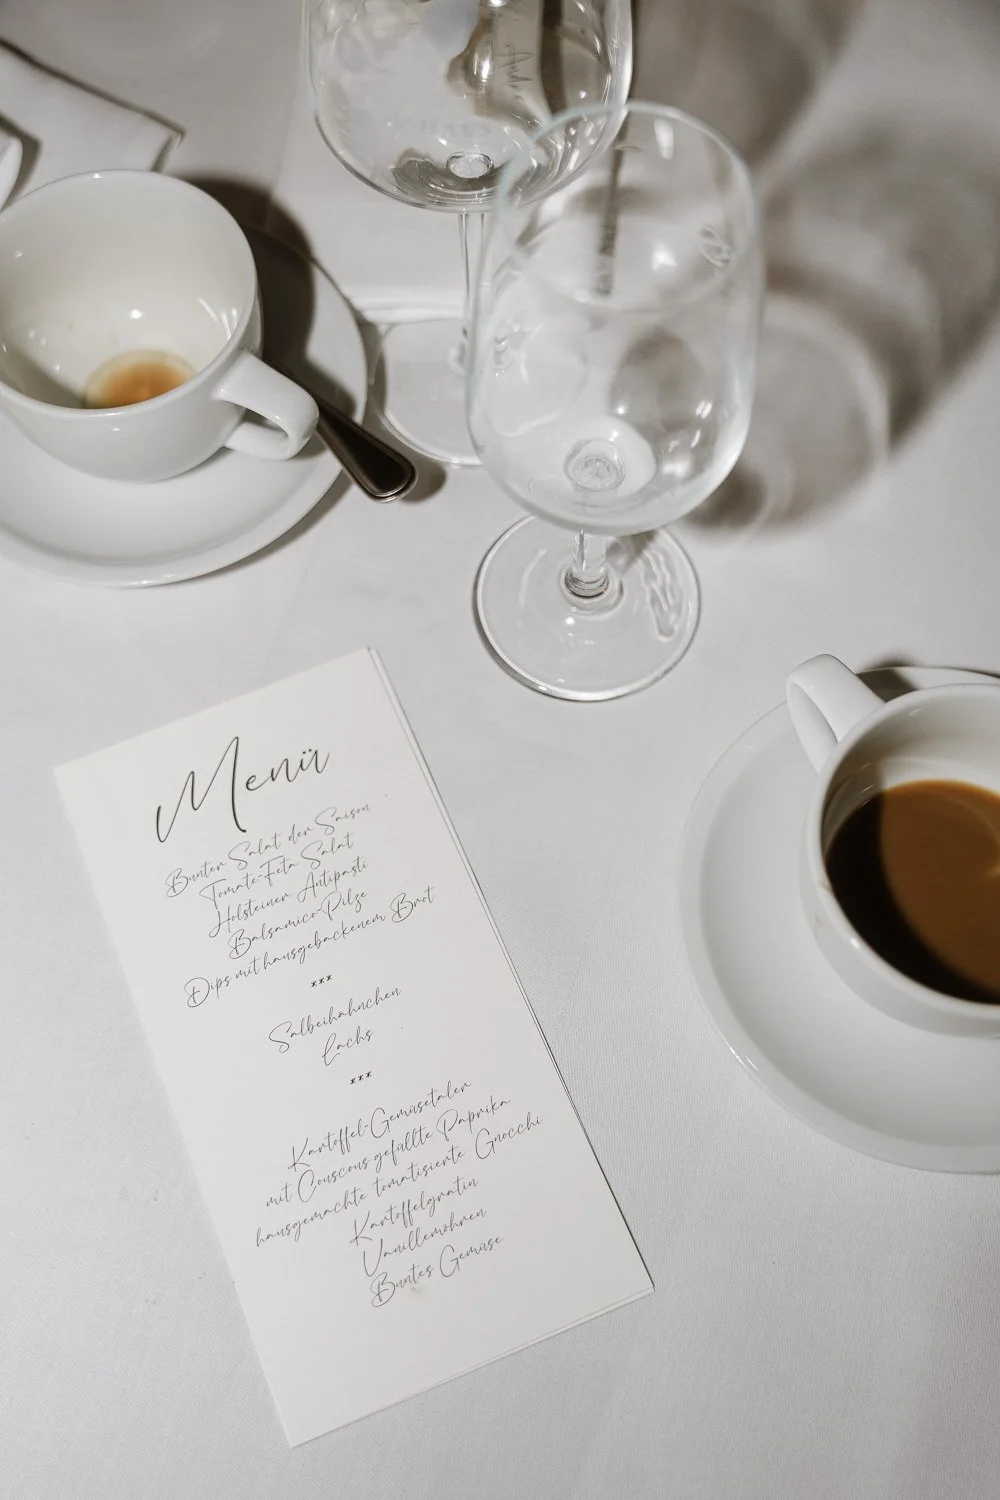 Menü
Bunter Salat der Saison
Tomate-Feta Salat
Holsteiner Antipasti
Balsamico-Pilze
Dips mit hausgebackenem Brot
***
Salbeihähnchen
Lachs
***
Kartoffel-Gemüsetaler
mit Couscous gefüllte Paprika
hausgemachte tomatisierte Gnocchi
Kartoffelgratin
Vanillemöhren
Buntes Gemüse